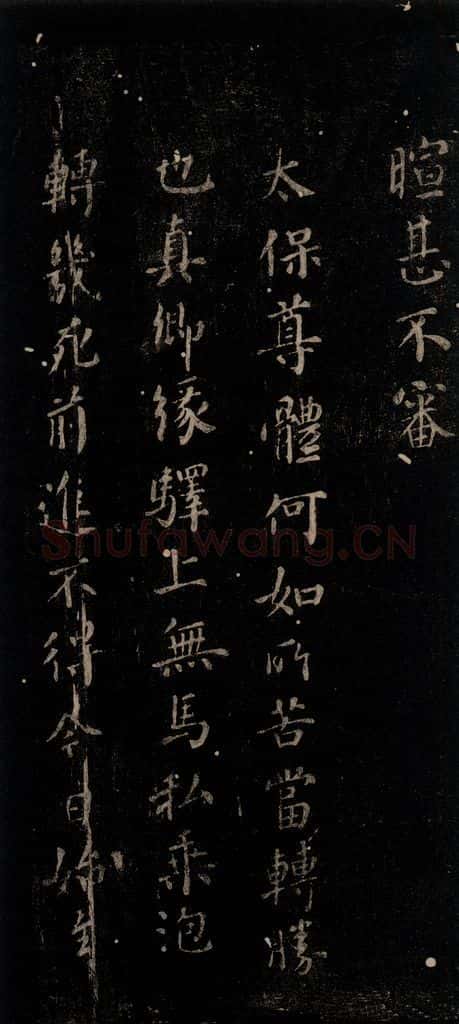 暄甚不審
太保尊體何如所苦當轉勝
也真卿緣驛上無馬私乘泡
轉幾死前進不得今日始至
Shufawang.CN